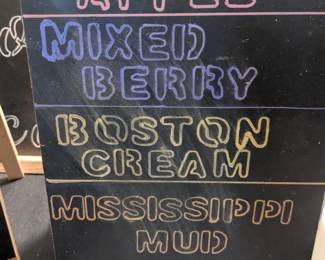 MIXED
BERRY
BOSTON
CREAM
MISSISSIPPI
MUD